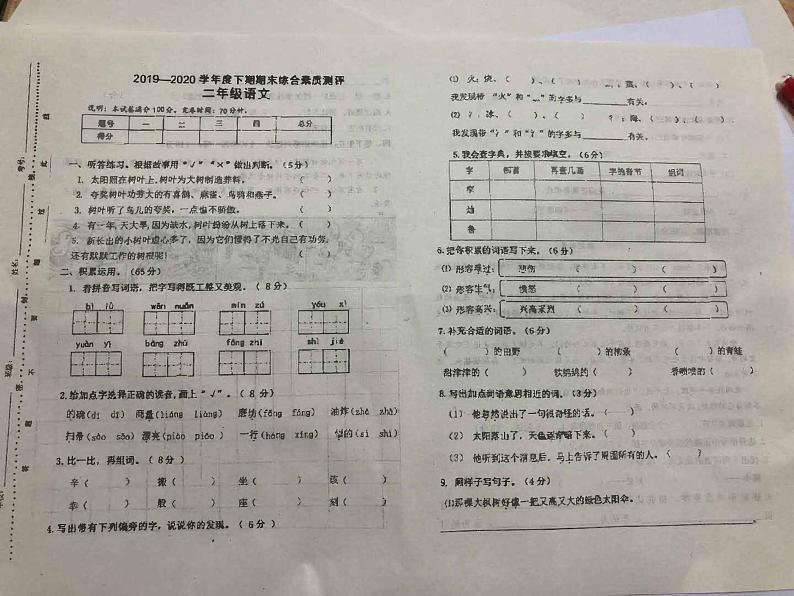 2019—2020学年度下期期末综合素质测评
二年级语文
说明：本试卷满分100分。完卷时间：70分钟。
题号 一 二 三 四 总分
得分
一、听答练习。根据故事用“√”“×”做出判断。（5分）
1. 太阳照在树叶上，树叶为大树制造养料。（ ）
2. 夸奖树叶功劳大的有喜鹊、麻雀、乌鸦和燕子。（ ）
3. 树叶听了鸟儿的夸奖，一点也不骄傲。（ ）
4. 有一年，天大旱，因为缺水，树叶纷纷从树上落下来。（ ）
5. 新长出的小树叶虚心多了，因为它们懂得了不光自己有功劳，
还有默默工作的树根呢！（ ）
二、积累运用。（65分）
1. 看拼音写词语，把字写得既工整又美观。（8分）
bì lǜ wēn nuǎn mín zú yóu xì
yuàn yì bāng zhù fǎng zhī shì jiè
2. 给加点字选择正确的读音，画上“√”。（8分）
的确（dí dí） 商量（liáng liàng） 磨坊（fáng fāng） 油炸（zhá zhà）
扫帚（sǎo sào） 漂亮（piào piāo） 一行（háng xíng） 似的（sì shì）
3. 比一比，再组词。（8分）
辛（ ） 搬（ ） 坐（ ） 该（ ）
幸（ ） 般（ ） 座（ ） 刻（ ）
4. 写出带有下列偏旁的字，说说你的发现。（6分）
(1) 火：烧、（ ）（ ） 灬：蒸、（ ）（ ）
我发现带“火”和“灬”的字多与 有关。
(2) 冫：冰、（ ）（ ） 氵：海、（ ）（ ）
我发现带“冫”和“氵”的字多与 有关。
5. 我会查字典，并按要求填空。（6分）
字 部首 再查几画 字的音节 组词
窄
灿
鲁
6. 把你积累的词语写下来。（6分）
(1) 形容难过： 悲伤 （ ）（ ）
(2) 形容生气： 愤怒 （ ）（ ）
(3) 形容高兴： 兴高采烈 （ ）（ ）
7. 补充合适的词语。（6分）
（ ）的田野 （ ）的柳条 （ ）的青蛙
甜津津的（ ） 软绵绵的（ ） 香喷喷的（ ）
8. 写出加点词语意思相近的词。（3分）
（1）他忽然说出了一句很奇怪的话。（ ）
（2）太阳落山了，天色逐渐暗下来。（ ）
（3）他听到这个消息后，马上告诉了周围所有的人。（ ）
9. 照样子写句子。（4分）
(1)那棵大枫树好像一把又高又大的绿色太阳伞。